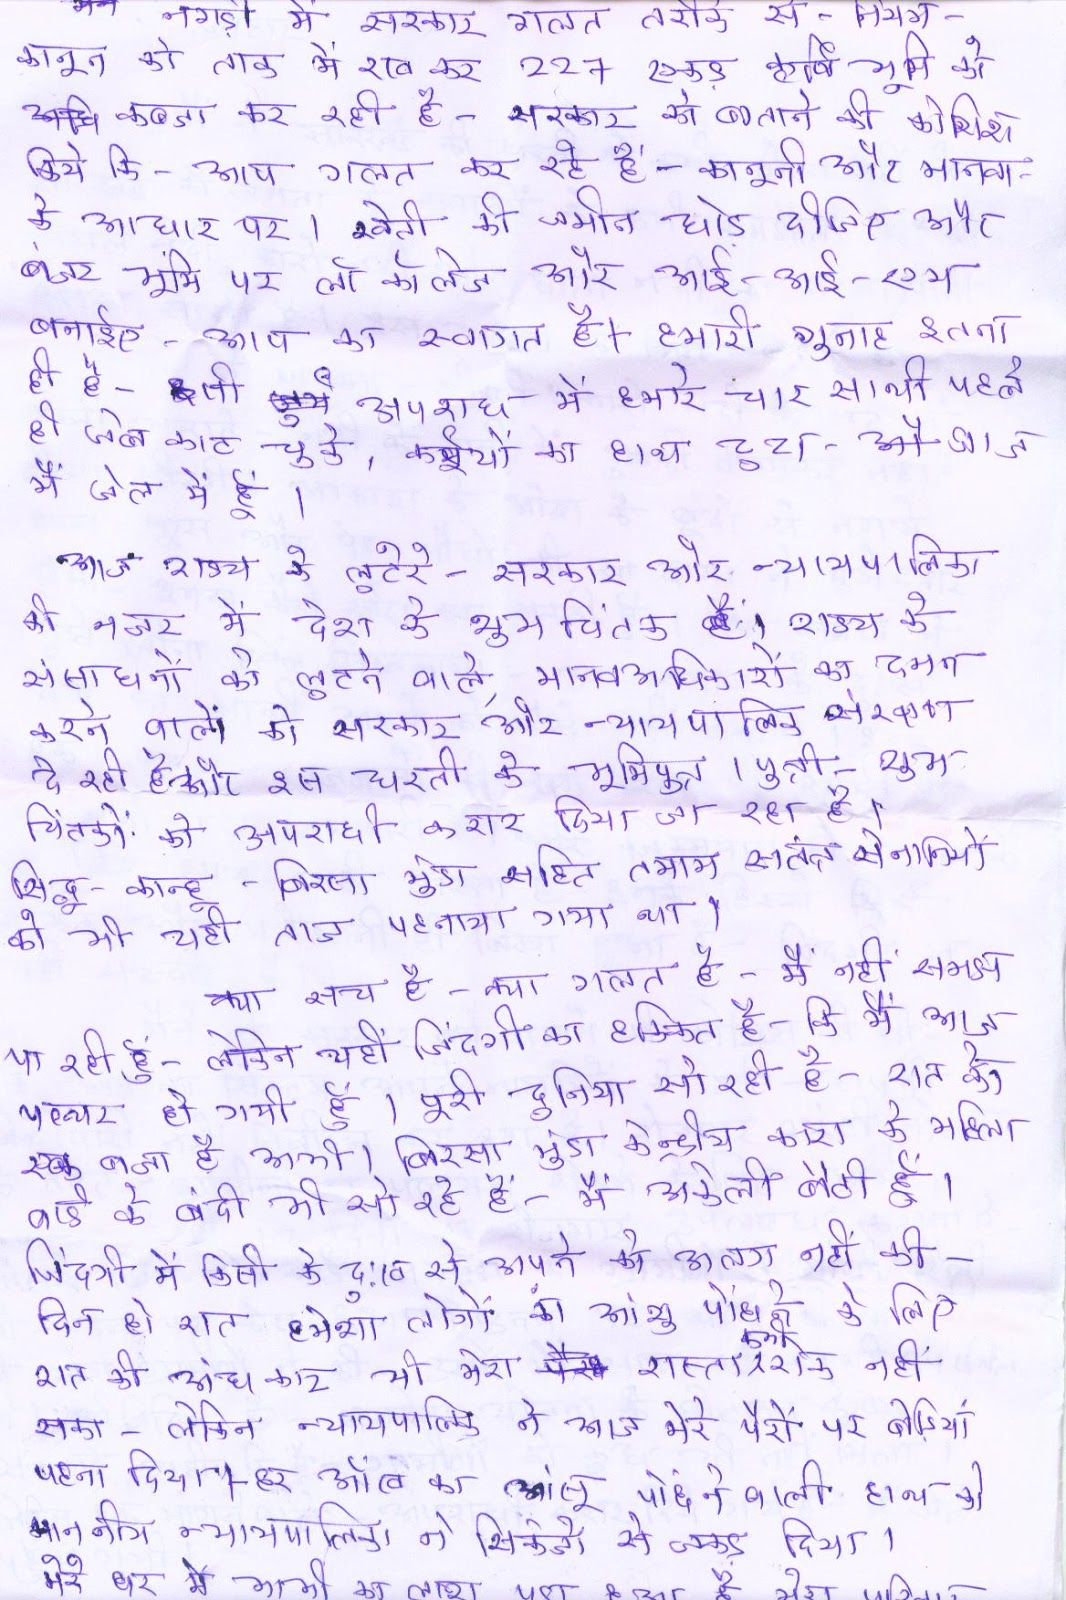 नगड़ी में सरकार गलत तरीके से - नियम -
कानून को ताक में रख कर 227 एकड़ कृषि भूमि को
कब्जा कर रही है - सरकार को बताने की कोशिश
किये कि - आप गलत कर रहे हैं - कानूनी और मानवा-
के आधार पर । खेती की जमीन छोड़ दीजिए और
बंजर भूमि पर लॉ कॉलेज और आई - आई - एम
बनाईए - आप का स्वागत है। हमारी गुनाह इतना
ही है - इसी अपराध में हमारे चार साथी पहले
ही जेल काट चुके, कईयों का हाथ टुटा - औ आज
मैं जेल में हूं ।
आज राज्य के लुटेरे - सरकार और न्यायपालिका
की नजर में देश के शुभचिंतक हैं। राज्य के
संसाधनों को लुटने वाले, मानवअधिकारों का दमन
करने वालों को सरकार और न्यायपालिक संरक्षण
दे रही है और इस धरती के भूमिपुत्र । पुत्री - शुभ
चिंतकों को अपराधी करार दिया जा रहा है ।
सिद्धु - कान्हू - बिरसा मुंडा सहित तमाम सेनानियों
को भी यही ताज पहनाया गया था ।
क्या सच है - क्या गलत है - मैं नहीं समझ
पा रही हूं - लेकिन यही जिंदगी का हकिकत है - कि मैं आज
पत्थर हो गयी हूँ । पूरी दुनिया सो रही है - रात के
एक बजा है अभी । बिरसा मुंडा केन्द्रीय कारा के महिला
वार्ड के बंदी भी सो रहे हैं - मैं अकेली बैठी हूँ ।
जिंदगी में किसी के दु:ख से अपने को अलग नहीं की -
दिन हो रात हमेशा लोगों का आंशु पोंछने के लिए
रात की अंधकार भी मेरा रास्ता कभी रोक नहीं
सका - लेकिन न्यायपालिक ने आज मेरे पैरों पर बेड़ियां
पहना दिया। हर आँख का आंसू पोछंने वाली हाथ को
माननीय न्यायपालिका ने सिकंजों से जकड़ दिया ।
मेरे घर में भाभी का लाश पड़ा हुआ है मेरा परिवार